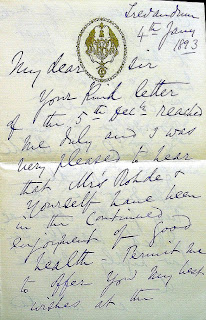 Trevandrum
4th Jany
1893
My dear Sir
Your kind letter
of the 5th Decr. reached
me duly and I was
very pleased to hear
that Mrs Rohde &
Yourself have been
in the continued
enjoyment of good
health - Permit me
to offer you my best
wishes at the